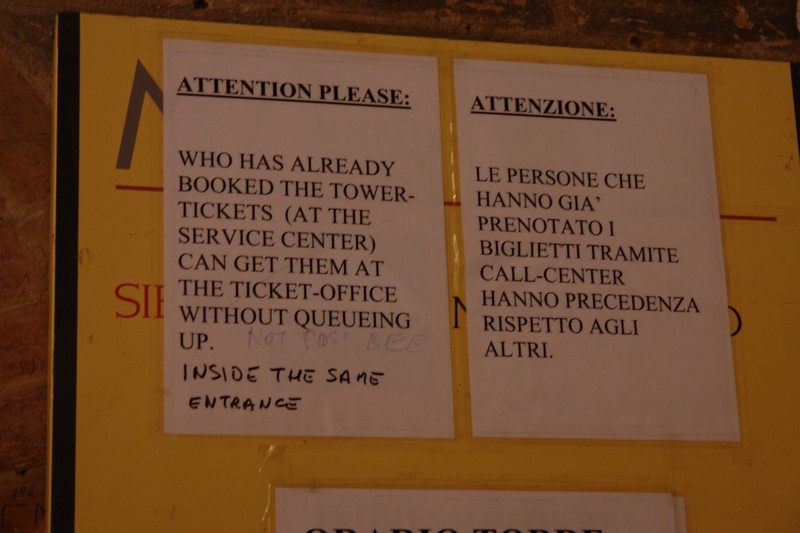 ATTENTION PLEASE:
WHO HAS ALREADY
BOOKED THE TOWER-
TICKETS (AT THE
SERVICE CENTER)
CAN GET THEM AT
THE TICKET-OFFICE
WITHOUT QUEUEING
UP. NOT
INSIDE THE SAME
ENTRANCE
ATTENZIONE:
LE PERSONE CHE
HANNO GIA'
PRENOTATO I
BIGLIETTI TRAMITE
CALL-CENTER
HANNO PRECEDENZA
RISPETTO AGLI
ALTRI.
ORARIO TORRE